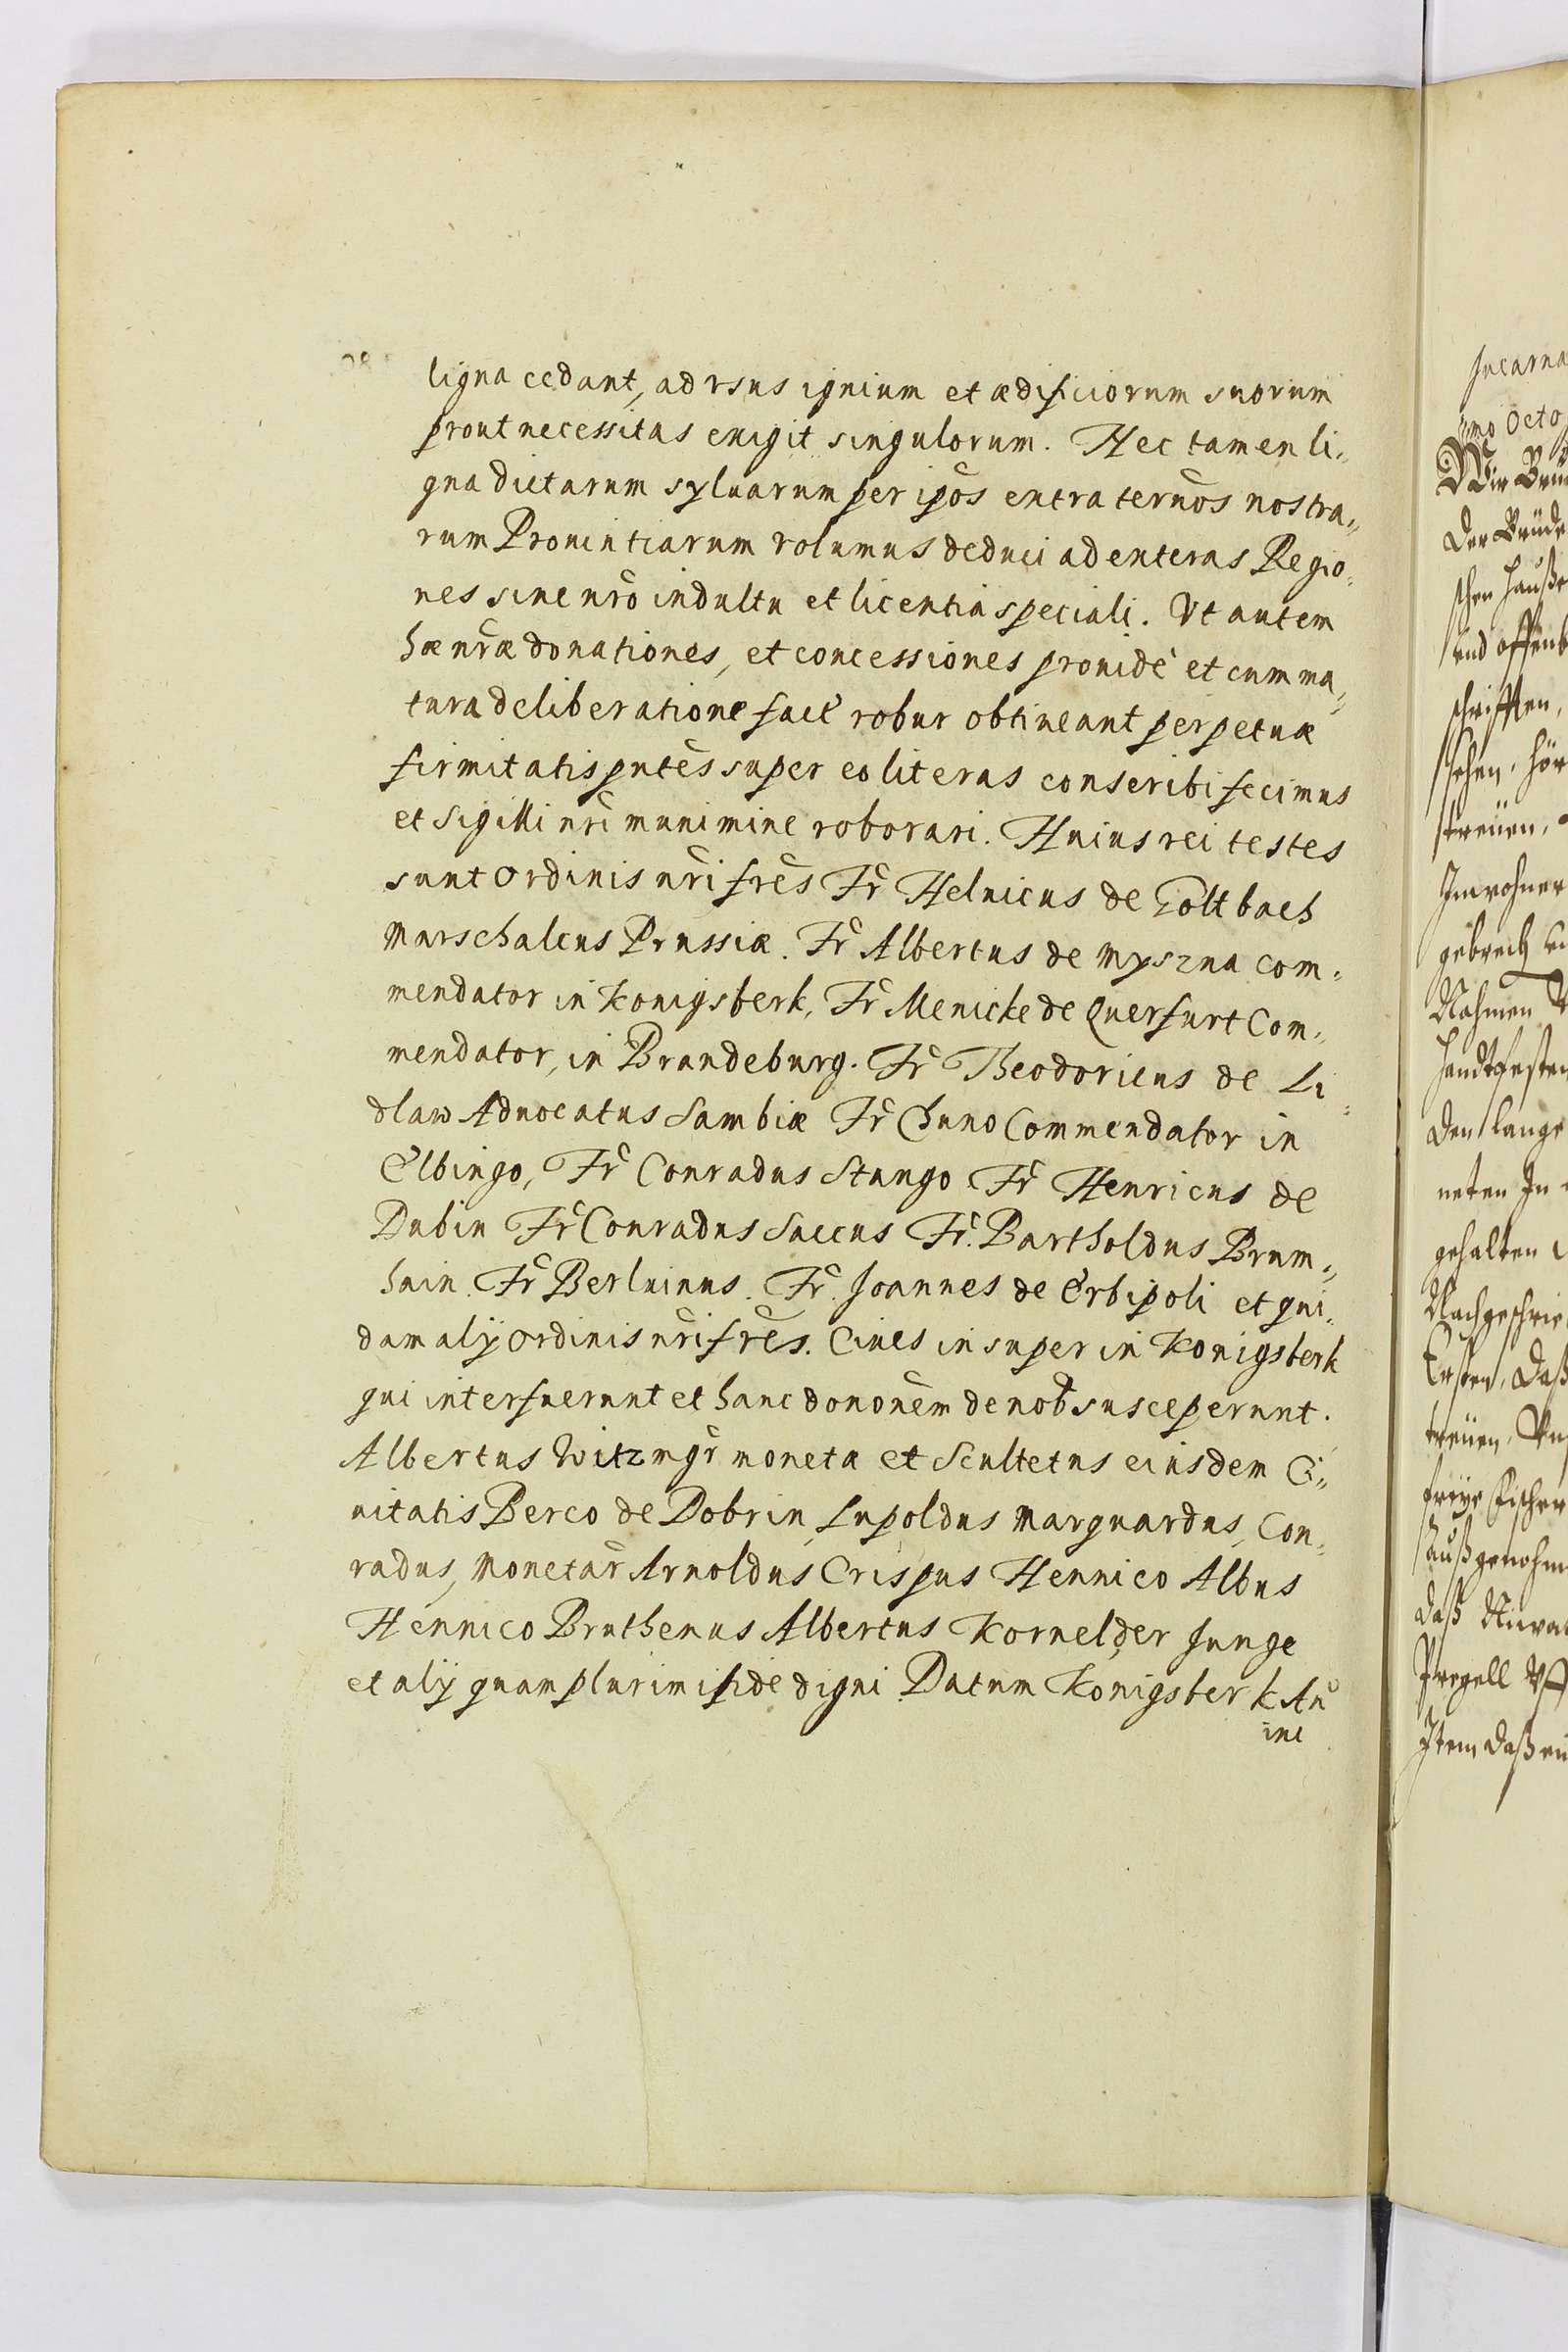 ligna cedant, ad vsus ignium et ædificiorum suorum
prout necessitas exigit singulorum. Hec tamen li¸
gna dictarum syluarum per ip̃os extra ter̃nos nostra¸
rum Prouintiarum volumus deduci ad exteras Regio¸
nes sine nr̃o indultu et licentia speciali. Vt autem
hæ nr̃æ donationes, et concessiones prouide et cum ma¸
tura deliberatione facte robur obtineant perpetuæ
firmitatis pn̄tes super eo literas conscribi fecimus
et Sigilli nr̃i munimine roborari. Huius rei testes
sunt Ordinis nr̃i fr̃es Fr̃ Heluicus de Goltbach
Marschalcus Prussiæ. Fr̃ Albertus de Myszna Com¸
mendator in Konigsberk, Fr̃ Menicke de Querfurt Com¸
mendator, in Brandeburg. Fr̃ Theodoricus de Li¸
dlaw Aduocatus Sambiæ Fr̃ Chuno Commendator in
Elbingo, Fr̃ Conradus Stango Fr̃ Henricus de
Dubin Fr̃ Conradus Saccus Fr̃. Bartholdus Brum¸
hain. Fr̃ Berluinus. Fr̃. Joannes de Erbipoli et qui¸
dam alÿ Ordinis nr̃i fr̃es. Ciues insuper in Konigsberk
qui interfuerunt et hanc dononẽm de nob̃ susceperunt.
Albertus Witz mgr̃ moneta et Scultetus eiusdem Ci¸
uitatis Berco de Dobrin, Lupoldus Marquardus, Con¸
radus, Monetar̃ Arnoldus Crispus Hennico Albus
Hennico Bruthenus Albertus Kornelder Junge
et alÿ quamplurimi fide digni Datum Konigsberk An̄
inc
Incarna
imo Octo
Wir Brud
Der Brüde
schen Hauße
vnd offenb
schrifften,
sehen, hör
streuen,
Inwohner
gebrech
Nahmen
Handtfesten
den lange
neten In
gehalten
Nachgeschrie
Ersten, daß
treuen
freÿe Fischer
außgenohm
daß
Pregell Vff
Item daß